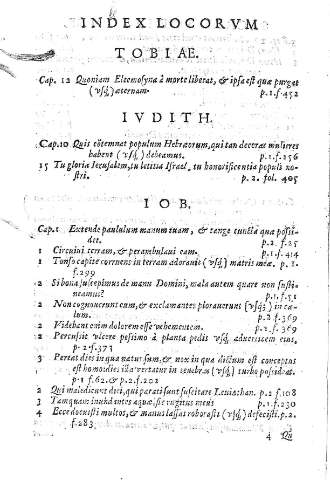 INDEX LOCORVM
TOBIAE.
Cap. 12 Quoniam Eleemosyna à morte liberat, & ipsa est quæ purgat
(vsq;) æternam. p.1.f.452
IVDITH.
Cap.10 Quis cōtemnat populum Hebræorum, qui tan decoras mulieres
habent (vsq;) debeamus. p.1.f.256
15 Tu gloria Ierusalem, tu letitia Israel, tu honorificentia populi no-
stri. p. 2. fol. 405
IOB.
Cap.1 Extende paululum manum tuam, & tange cuncta quæ possi-
det. p.2. f.25
1 Circuiui terram, & perambulaui eam. p.1. f.414
1 Tonso capite corruens in terram adorauit (vsq;) matris meæ. p.1.
f.299
2 Si bona suscepimus de manu Domini, mala autem quare non susti-
neamus? p.1.f.51
2 Non cognouerunt eum, & exclamantes plorauerunt (vsq;) in cæ-
lum. p.2.f.369
2 Videbant enim dolorem esse vehementem. p.2.f.369
2 Percussit vlcere pessimo à planta pedis vsq; ad verticem eius.
p.2.f.373
3 Pereat dies in qua natus sum, & nox in qua dictum est conceptus
est homo dies illa vertatur in tenebras (vsq;) turbo possideat.
p.1 f.62.& p.2.f.202
2 Qui maledicunt diei, qui parati sunt suscitare Leuiathan. p.2 f.108
3 Tamquam inundantes aquæ, sic rugitus meus p.1.f.230
4 Ecce docuisti multos, & manus lassas roborasti (vsq;) defecisti. p.2.
f.283
4 Qu